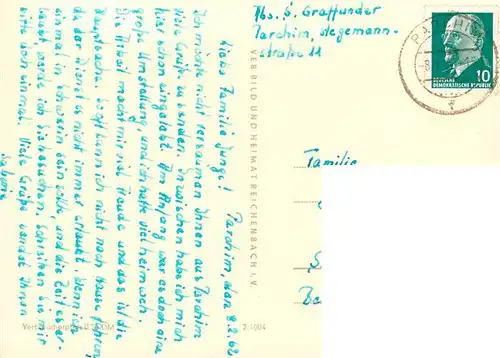 Abs. S. Graffunder
Parchim, Stegemann-
straße 11
PARCHIM
10
DEUTSCHE
DEMOKRATISCHE REPUBLIK
Parchim, den 8.2.62
Liebe Familie Junge!
Ich möchte nicht versäumen Ihnen aus Parchim
liebe Grüße zu senden. Inzwischen habe ich mich
hier schon eingelebt. Am Anfang war es doch eine
große Umstellung, und ich hatte viel Heimweh.
Die Arbeit macht mir viel Freude und das ist die
Hauptsache. So oft kann ich nicht nach Hause fahren,
da der Dienst es nicht immer erlaubt. Wenn ich
einmal in Schwerin sein sollte, und die Zeit es er-
laubt, werde ich Sie besuchen. Schreiben Sie mir
bitte aber einmal. Viele Grüße sendet Ihnen
Sabine
VEB BILD UND HEIMAT REICHENBACH I. V.
Verbraucherpreis DM
Familie